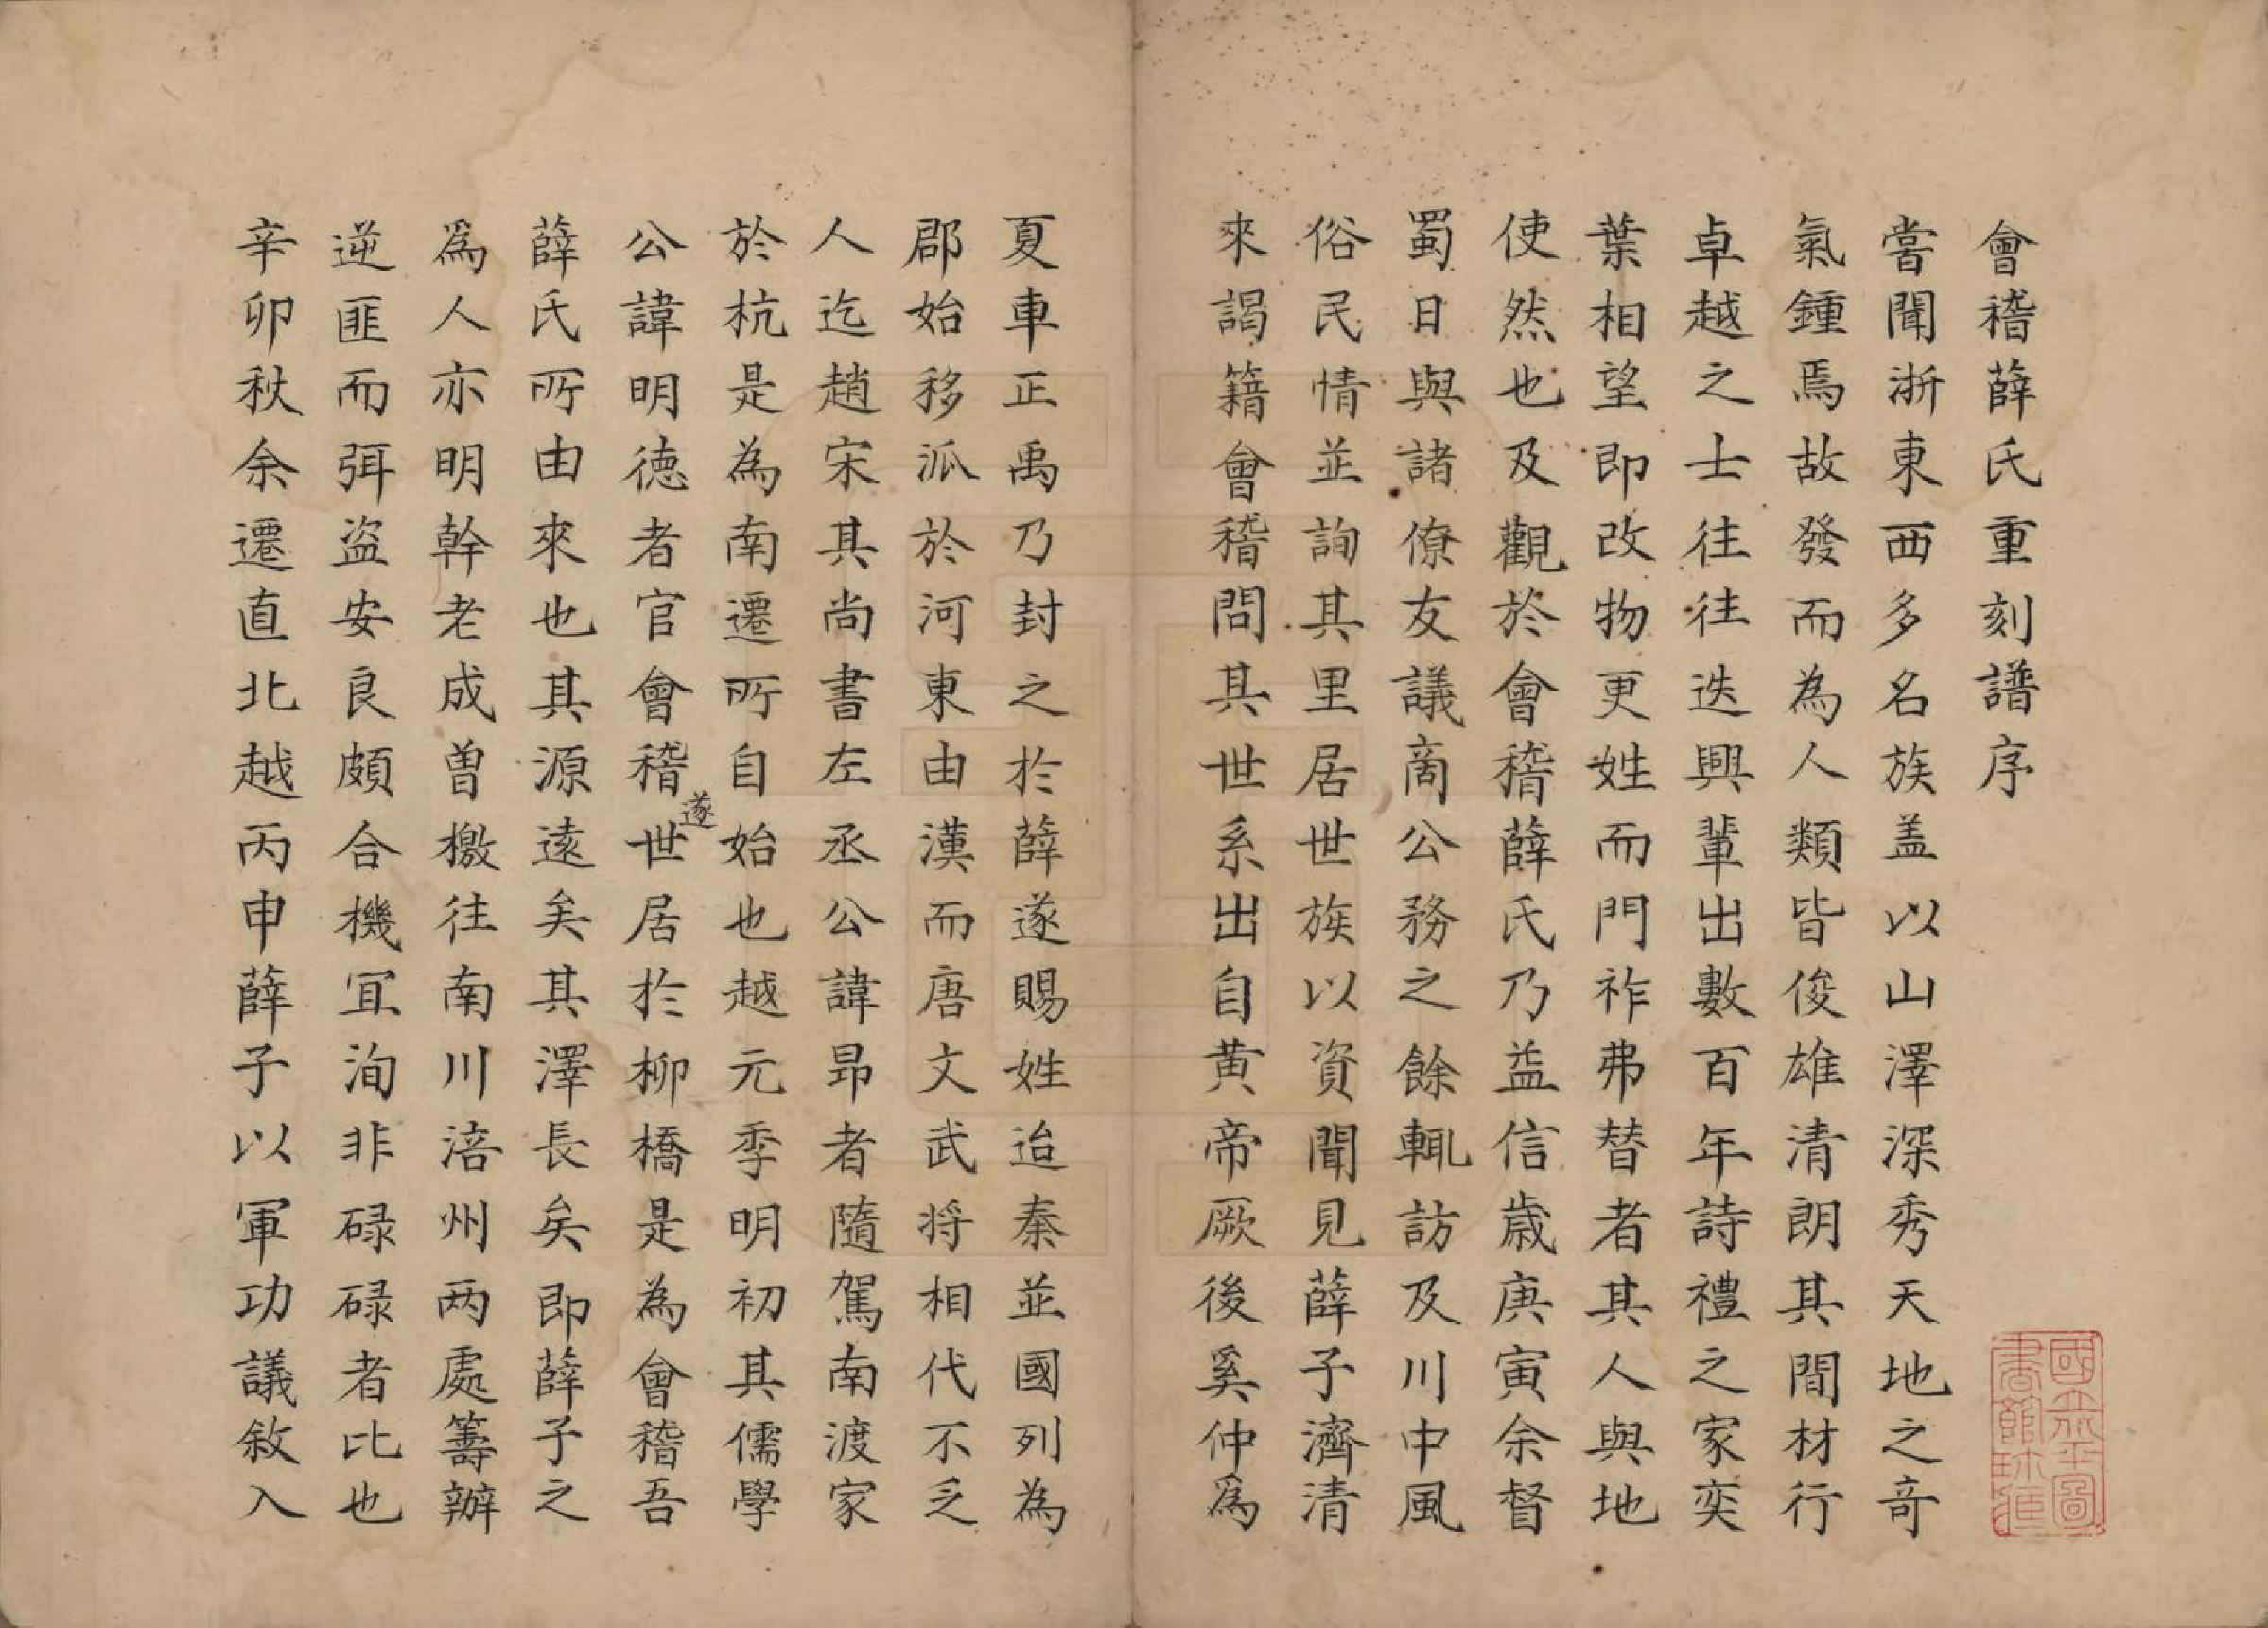 會稽薛氏重刻譜序
嘗聞浙東西多名族盖以山澤深秀天地之奇
氣鍾焉故發而為人類皆俊雄清朗其間材行
卓越之士往往迭興輩出數百年詩禮之家奕
葉相望即改物更姓而門祚弗替者其人與地
使然也及觀於會稽薛氏乃益信歲庚寅余督
蜀日與諸僚友議商公務之餘輒訪及川中風
俗民情並詢其里居世族以資聞見薛子濟清
來謁籍會稽問其世系出自黄帝厥後奚仲爲
夏車正禹乃封之於薛遂賜姓迨秦並國列為
郡始移派於河東由漢而唐文武将相代不乏
人迄趙宋其尚書左丞公諱昂者隨駕南渡家
於杭是為南遷所自始也越元季明初其儒學
公諱明德者官會稽遂世居於柳橋是為會稽吾
薛氏所由來也其源遠矣其澤長矣即薛子之
爲人亦明幹老成曾檄往南川涪州两處籌辦
逆匪而弭盜安良頗合機宜洵非碌碌者比也
辛卯秋余遷直北越丙申薛子以軍功議敘入
國立北平圖
書館珍藏